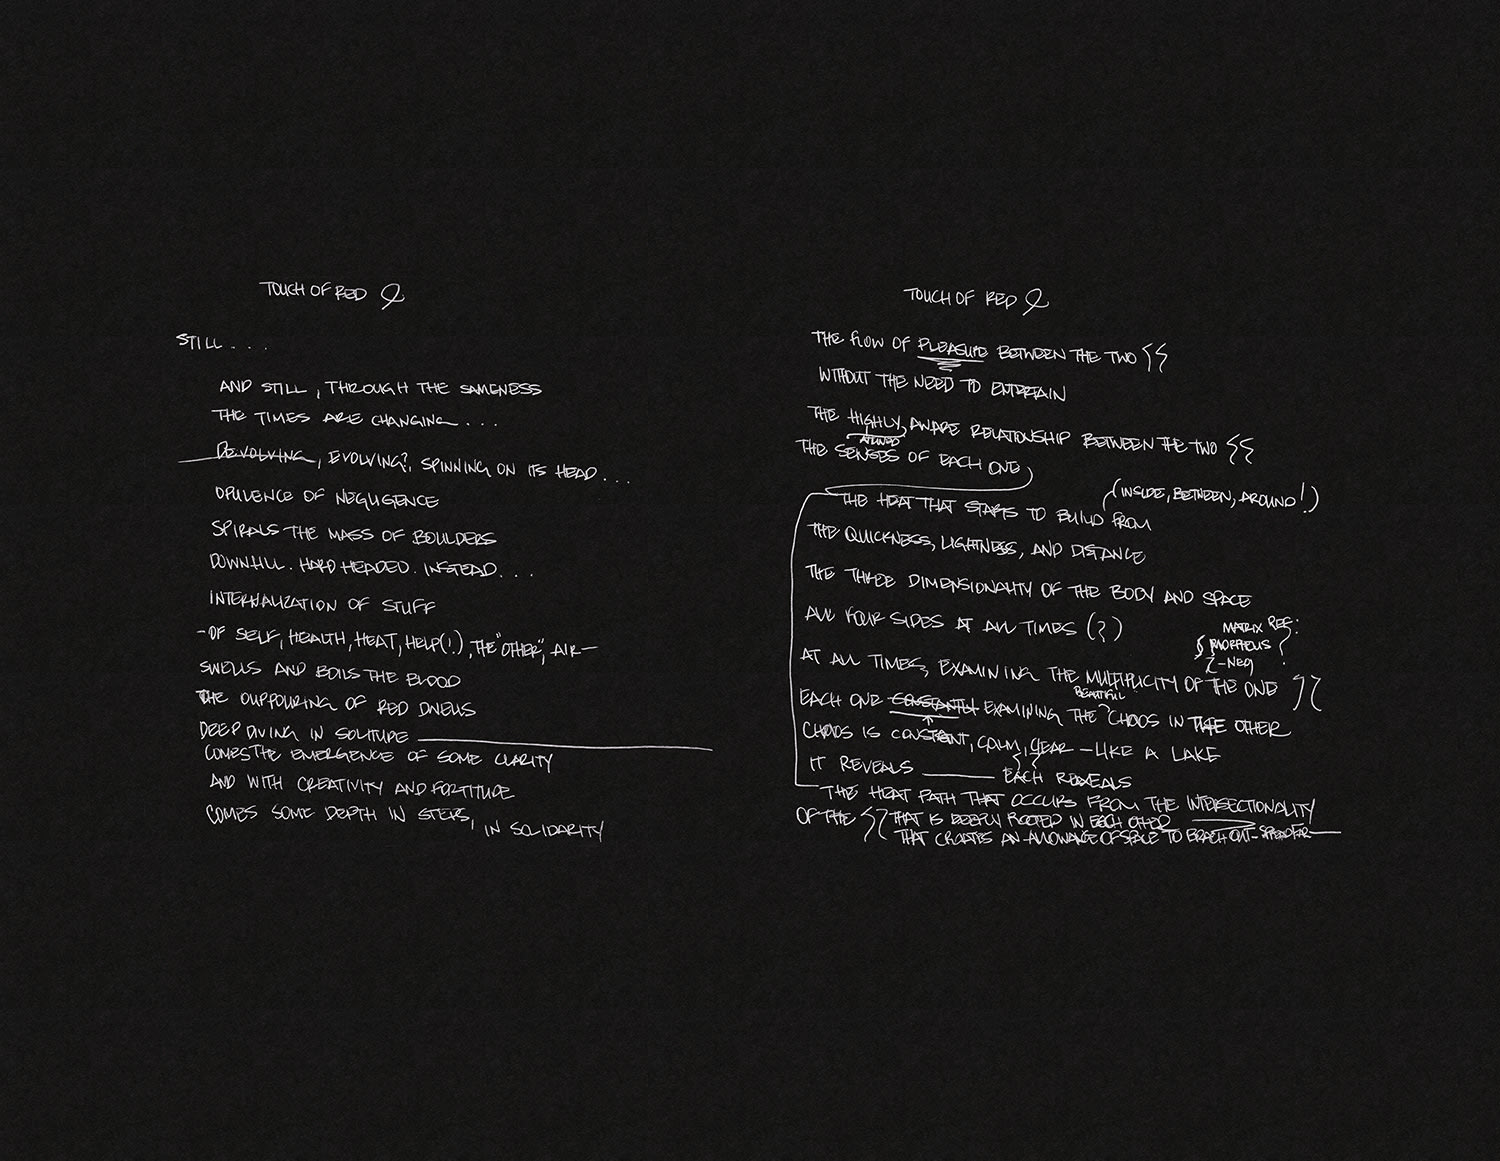 TOUCH OF RED
STILL . . .
AND STILL, THROUGH THE SAMENESS
THE TIMES ARE CHANGING . . .
REVOLVING, EVOLVING?, SPINNING ON ITS HEAD . . .
OPULENCE OF NEGLIGENCE
SPIRALS THE MASS OF BOULDERS
DOWNHILL. HARD HEADED. INSTEAD. . .
INTERNALIZATION OF STUFF
- OF SELF, HEALTH, HEAT, HELP(!), THE "OTHER", AIR -
SWELLS AND BOILS THE BLOOD
THE OUPPOURING OF RED DWELLS
DEEP DIVING IN SOLITUDE
COMES THE EMERGENCE OF SOME CLARITY
AND WITH CREATIVITY AND FORTITUDE
COMES SOME DEPTH IN STEPS, IN SOLIDARITY
TOUCH OF RED
THE FLOW OF PLEASURE BETWEEN THE TWO
WITHOUT THE NEED TO ENTERTAIN
THE HIGHLY, AWARE RELATIONSHIP BETWEEN THE TWO
ATTUNED
THE SENSES OF EACH ONE
(INSIDE, BETWEEN, AROUND!)
THE HEAT THAT STARTS TO BUILD FROM
THE QUICKNESS, LIGHTNESS, AND DISTANCE
THE THREE DIMENSIONALITY OF THE BODY AND SPACE
ALL FOUR SIDES AT ALL TIMES (?)
MATRIX REF:
MORPHEUS
- NEO
AT ALL TIMES, EXAMINING THE MULTIPLICITY OF THE ONE
BEAUTIFUL
EACH ONE CONSTANTLY EXAMINING THE CHAOS IN THE OTHER
CHAOS IS CONSTANT, CALM, CLEAR - LIKE A LAKE
IT REVEALS EACH REVEALS
THE HEAT PATH THAT OCCURS FROM THE INTERSECTIONALITY
OF THE THAT IS DEEPLY ROOTED IN EACH OTHER
THAT CREATES AN ALLOWANCE OF SPACE TO BRACH OUT -